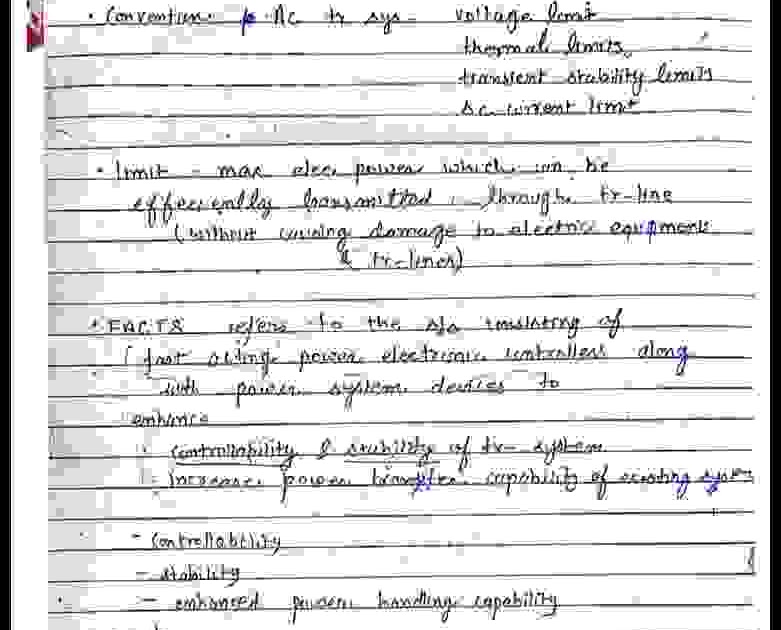 • Convention AC tr sys - voltage limit
thermal limits
transient stability limits
s.c. current limit
• limit - max elec. power which can be
efficiently transmitted through tr-line
(without causing damage to electric equipment
& tr-lines)
• FACTS refers to the s/s consisting of
fast acting power electronic controllers along
with power system devices to
enhance
controllability & stability of tr- system
- Increase power transfer capability of existing system
- controllability
- stability
- enhanced power handling capability